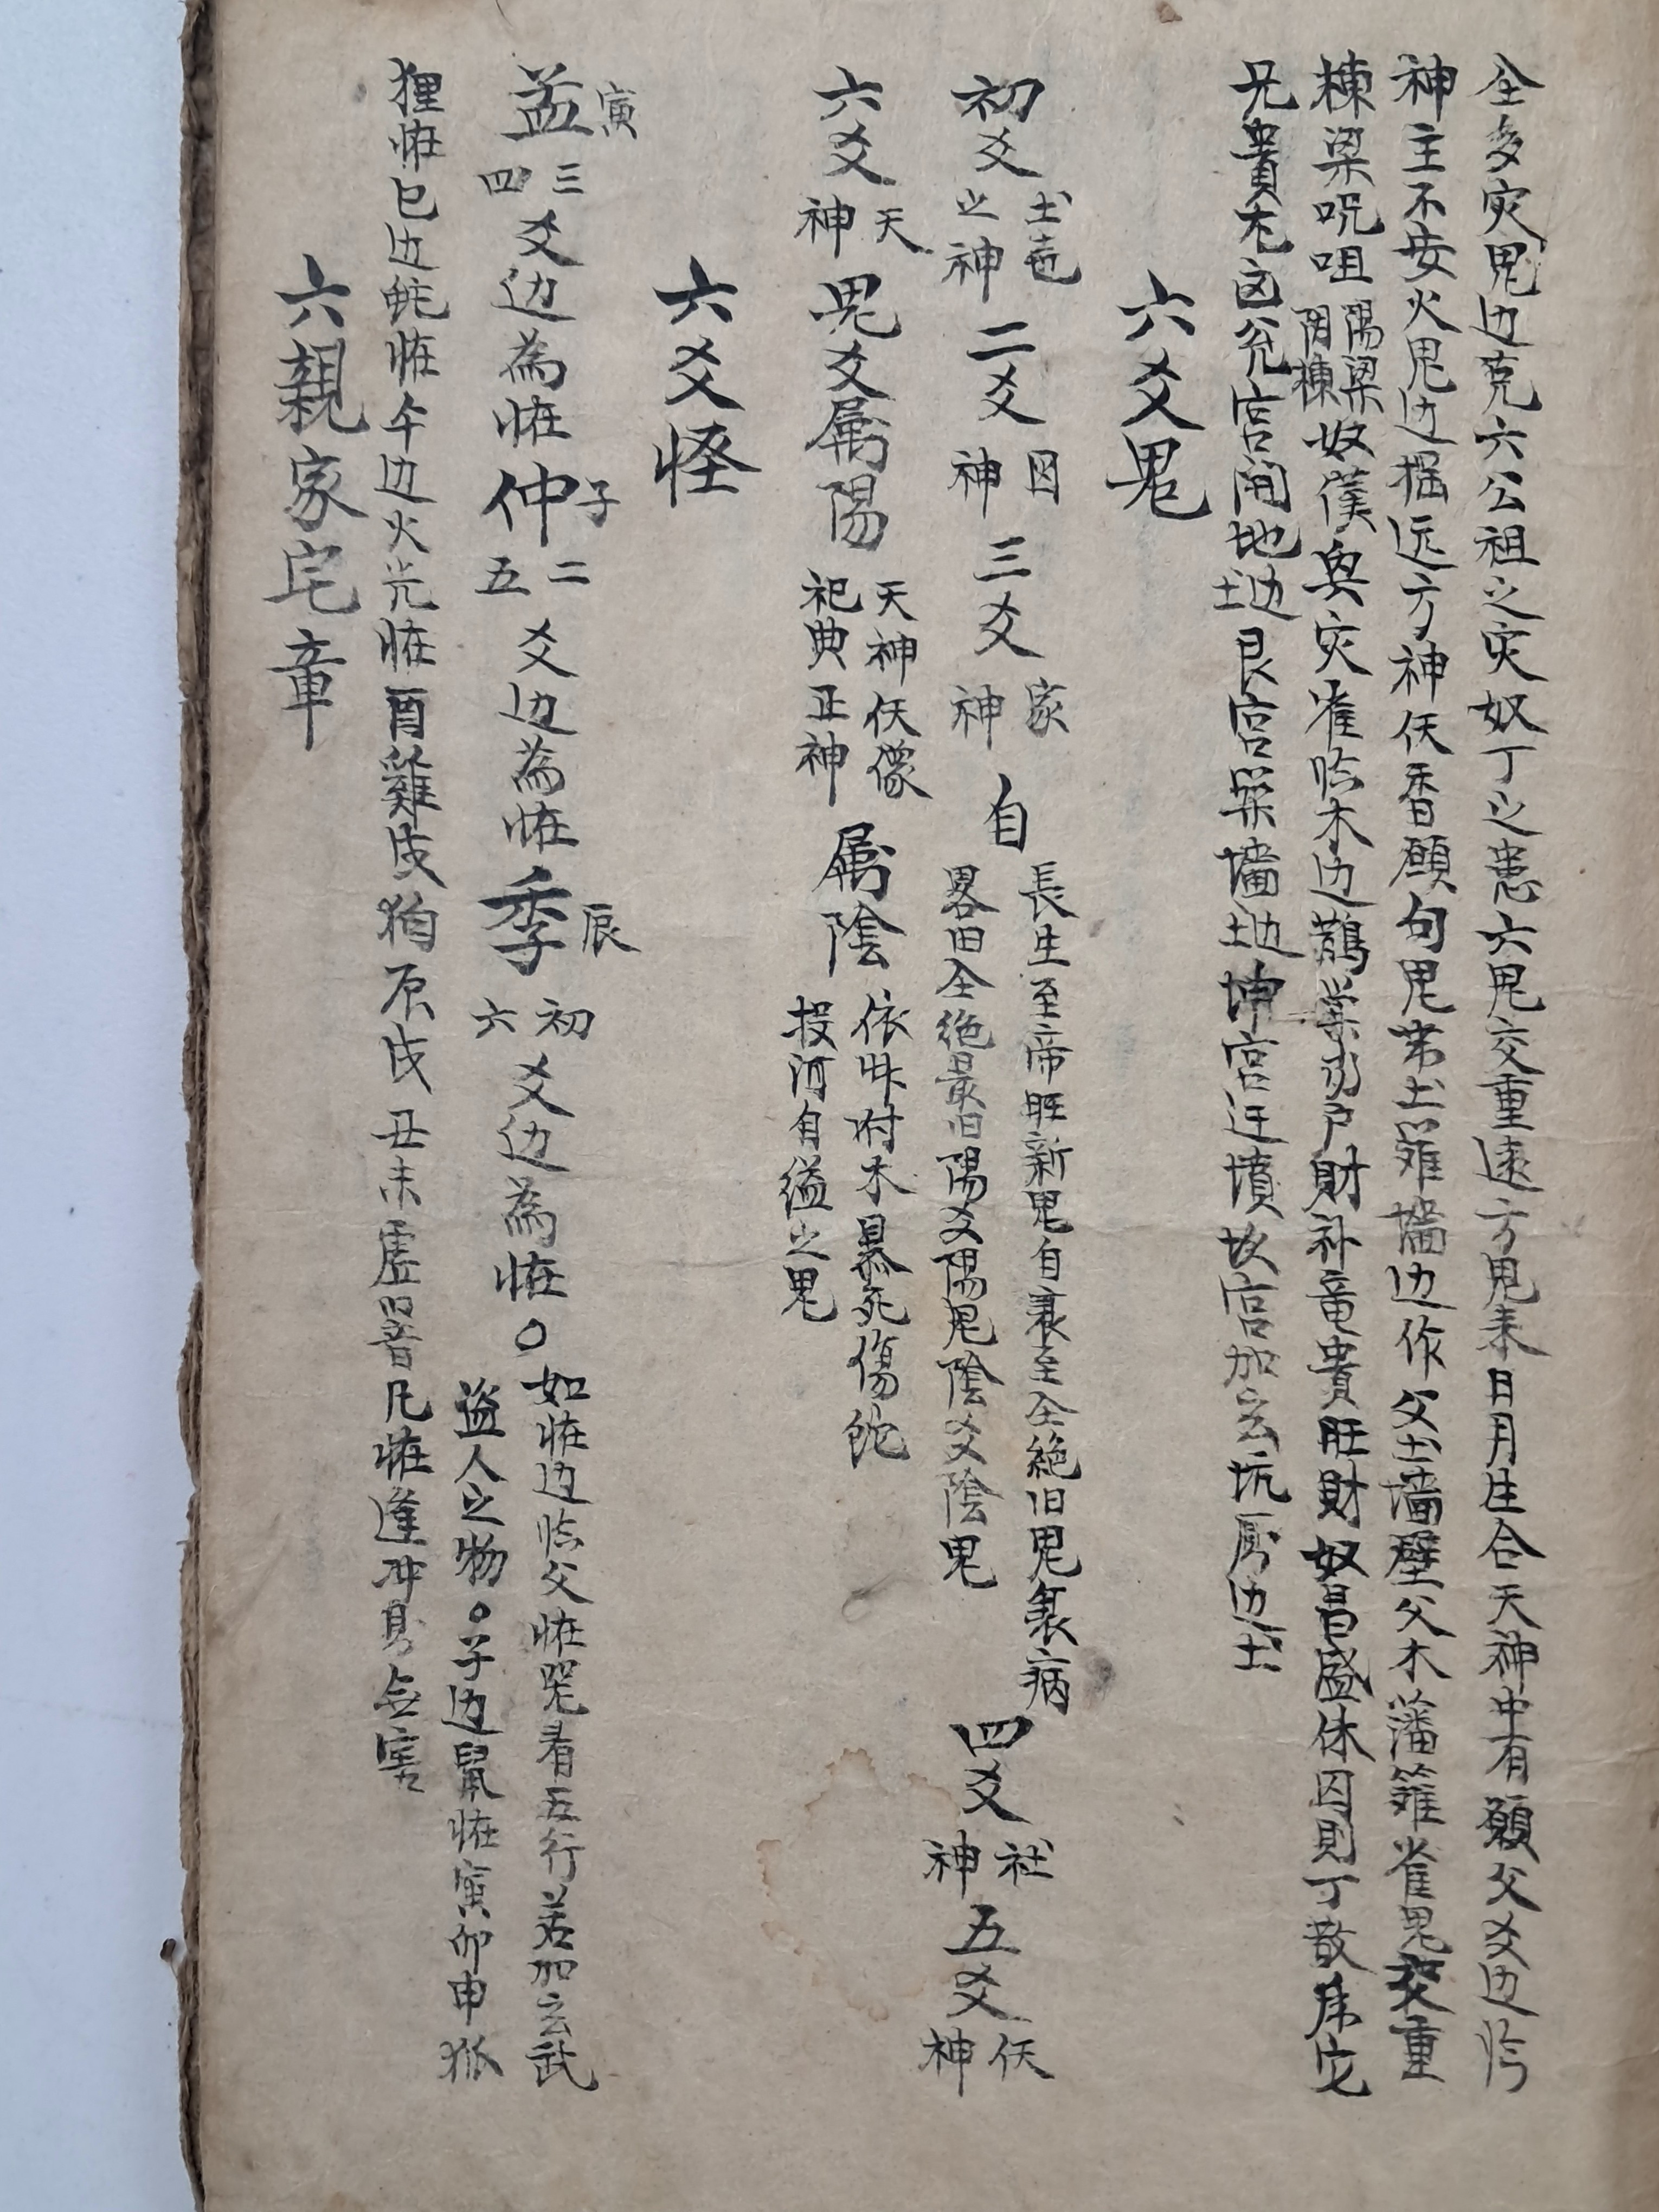 全多灾鬼边克六公祖之灾奴丁之患六鬼交重遠方鬼来日月生合天神中有願父爻边临
神主不安火鬼边边掘远方神伏香願句鬼带土籬墙边作父土墙壁父木藩籬雀鬼交重
棟梁呪咀
陽梁
阴棟
奴僕與灾雀临木边鵲巢
户財补竜貴旺財奴昌盛休囚則丁散
宅
兄貴木凶兊宫開地边土艮宫築墙边土坤宫迁墳坎宫加玄坑厠边土
六爻鬼
初爻
土
之神
二爻
神
三爻
家
神
自
長生至帝旺新鬼自衰至全絶旧鬼
病
畧旧全绝最旧陽爻陽鬼陰爻陰鬼
四爻
社
神
五爻
伏
神
六爻
天
神
鬼爻属陽
天神伏像
祀典正神
属陰
依艸附木暴死傷蛇
投河自縊之鬼
六爻怪
孟
寅
三
四
爻边為怪
仲
子
二
五
爻边為怪
季
辰
初
六
爻边為怪○
如怪边临父怪
看五行若加玄武
盗人之物○子边鼠怪寅卯申狐
狸怪巳边蛇怪午边火光怪酉雞戌狗
戌丑未虚
凡怪逢冲
害
六親家宅章